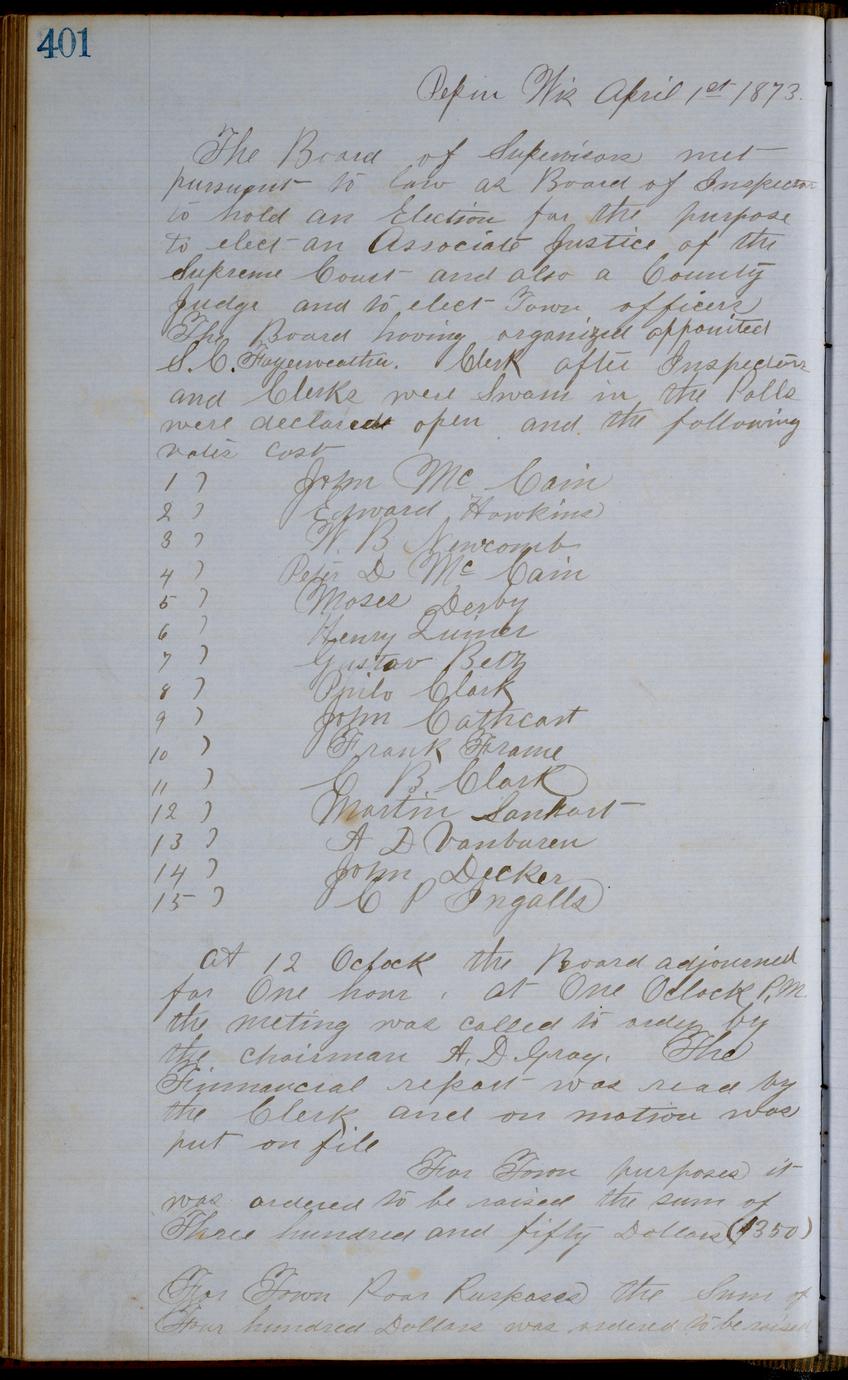 401
Pepin Wis April 1st 1873.
The Board of Supervisors met
pursuant to law as Board of Inspectors
to hold an Election for the purpose
to elect an Associate Justice of the
Supreme Court and also a County
Judge and to elect Town officers
The Board having organized appointed
S. C. Fayerweather. Clerk after Inspectors
and Clerks were Sworn in, the Polls
were declared open and the following
votes cast
1 ) John Mc Cain
2 ) Edward Hawkins
3 ) W. B Newcomb
4 ) Peter D Mc Cain
5 ) Moses Derby
6 ) Henry Quiner
7 ) Gustav Betz
8 ) Philo Clark
9 ) John Cathcart
10 ) Frank Frame
11 ) C B Clark
12 ) Martin Sankart
13 ) A D Vanburen
14 ) John Decker
15 ) C P Ingalls
At 12 Oclock the Board adjourned
for One hour, at One Oclock P.M.
the meting was called to order by
the chairman A. D. Gray. The
Finnancial report was read by
the Clerk and on motion was
put on file
For Town purposes it
was ordered to be raised the sum of
Three hundred and fifty Dollars ($350)
For Town Poor Purposes the Sum of
Four hundred Dollars was ordered to be raised